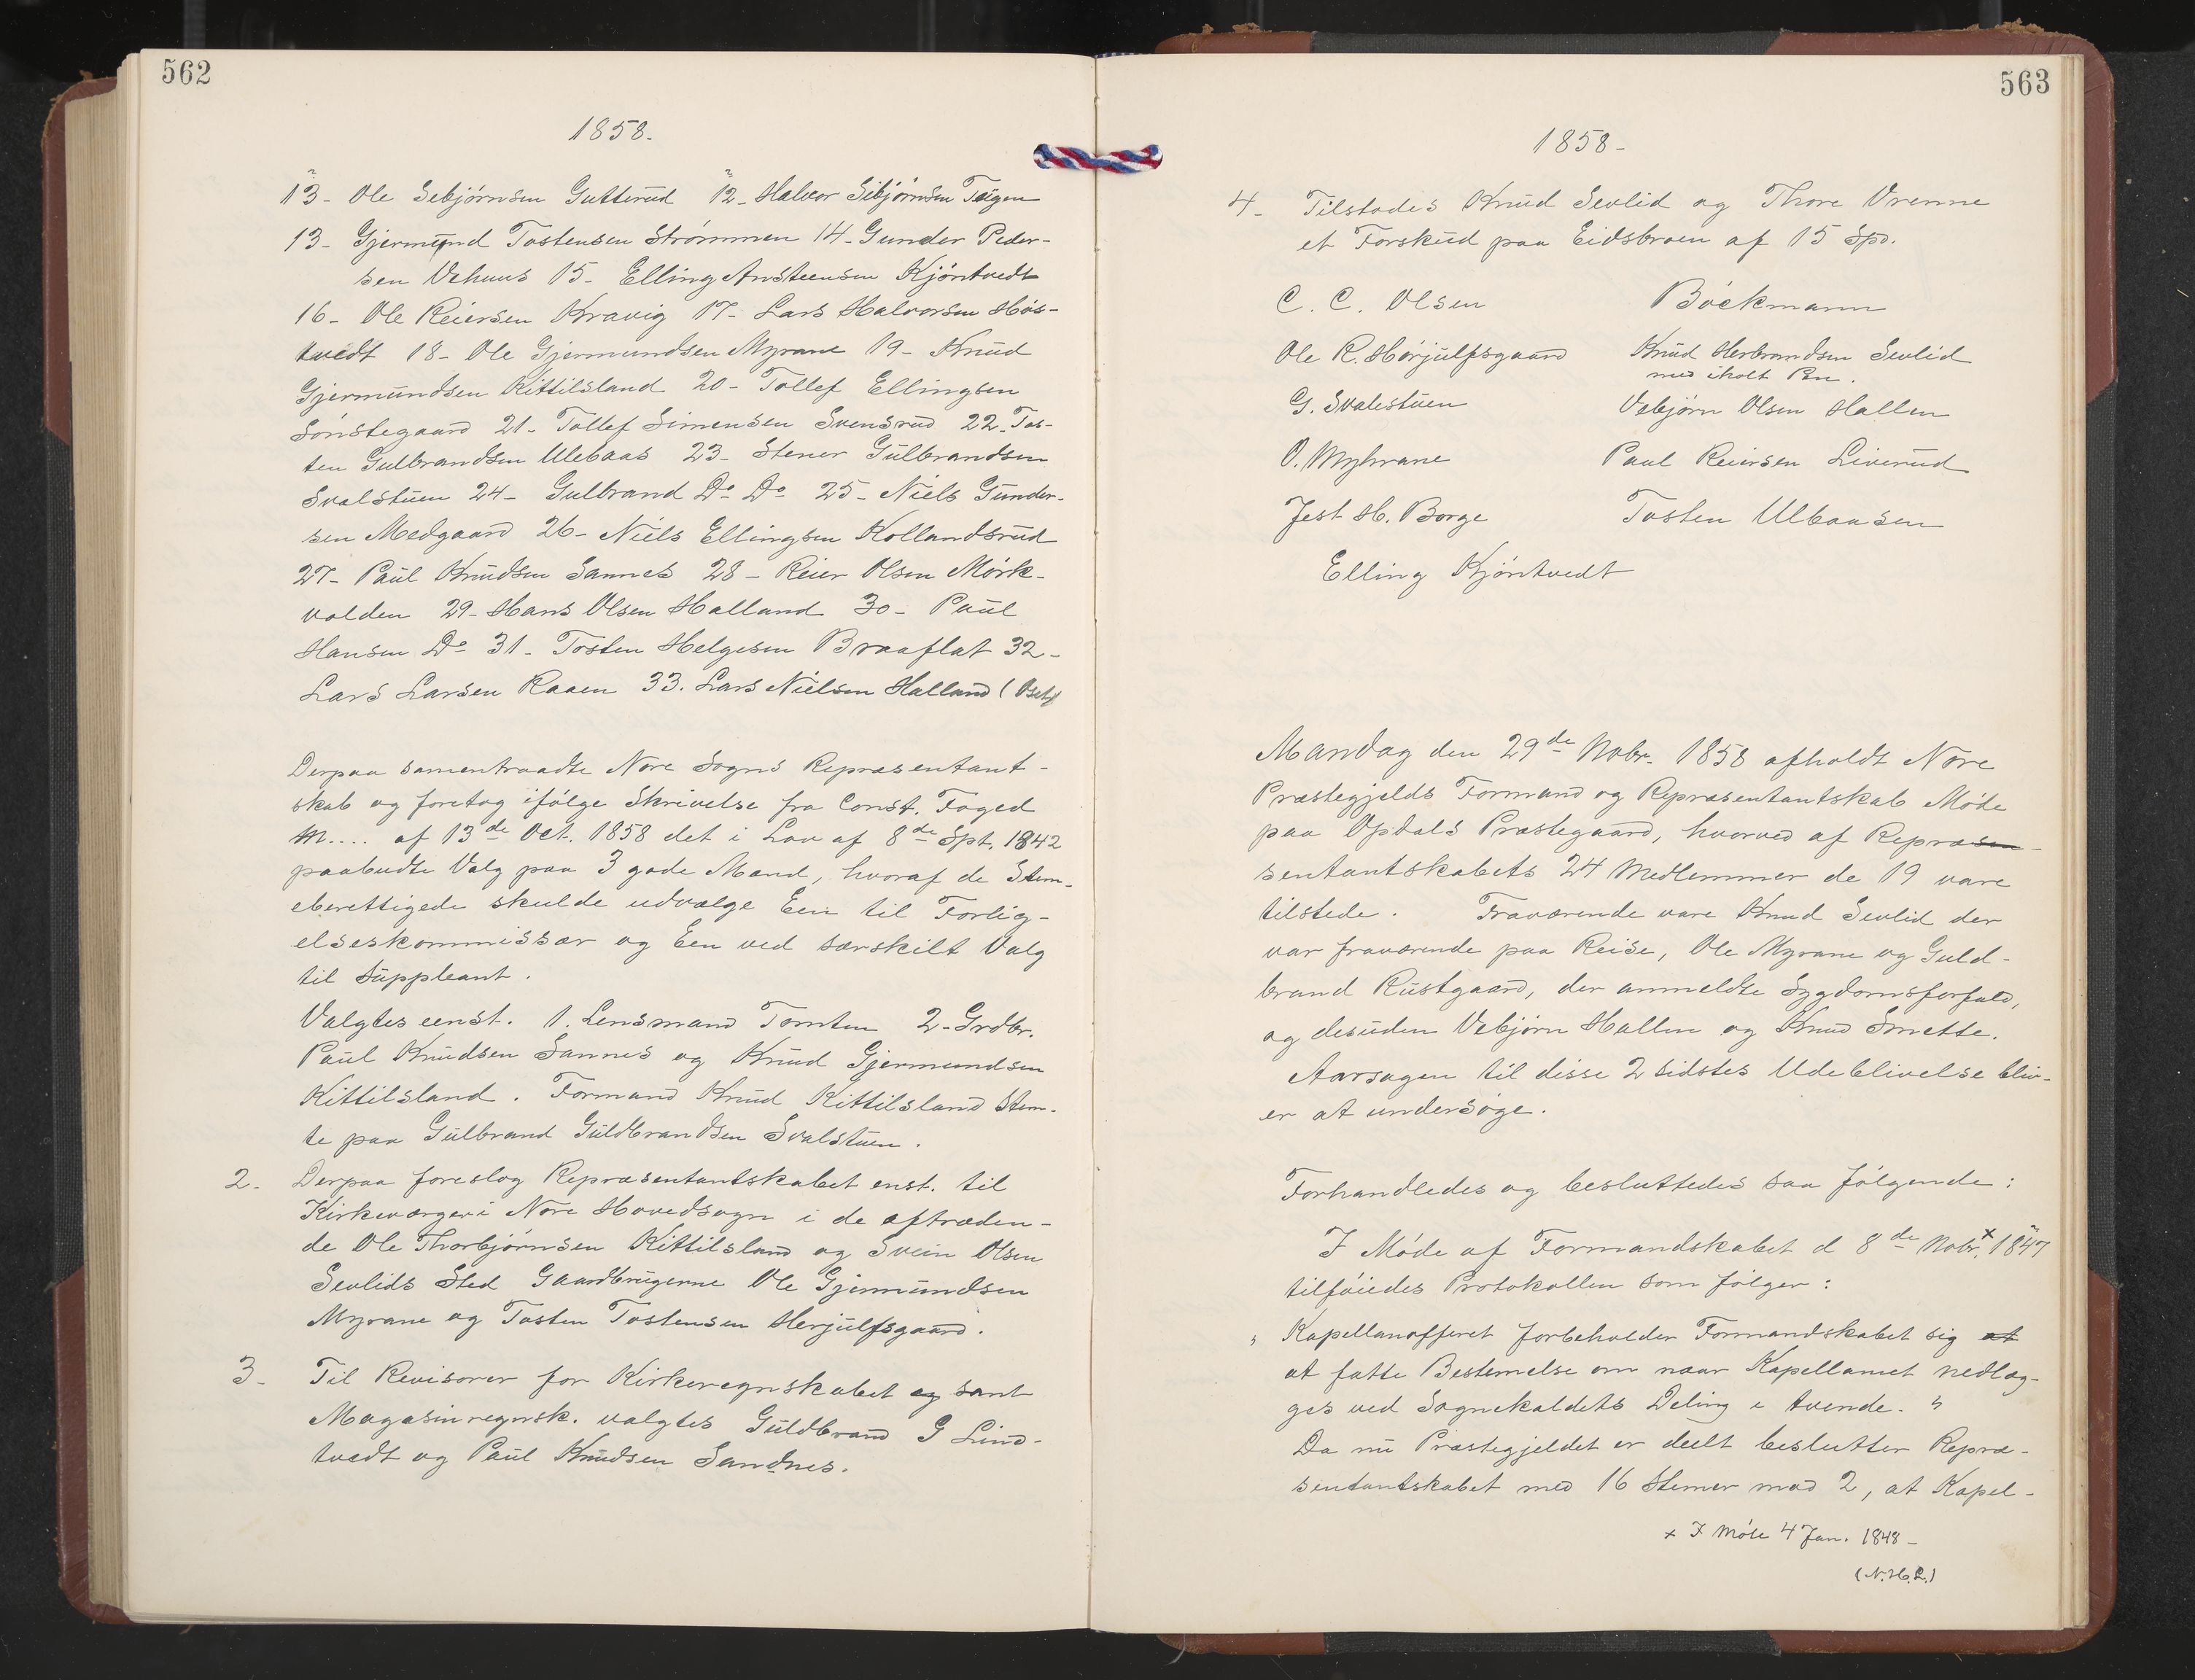 562
1858.
13- Ole Sebjørnsen Gutterud 12- Halvor Sibjørnsen Teigen
13- Gjermund Tostensen Strømmen 14- Gunder Peder-
sen Vehuus 15- Elling Ansteensen Kjøntvedt
16- Ole Reiersen Kravig 17- Lars Halvorsen Høs-
tvedt 18- Ole Gjermundsen Myrane 19- Knud
Gjermundsen Kittilsland 20- Tollef Ellingsen
Sønstegaard 21- Tollef Simensen Svensrud 22. Tos-
ten Gulbrandsen Ulebaas 23- Stener Gulbrandsen
Svalstuen 24- Gulbrand Do Do 25- Niels Gunder-
sen Medgaard 26- Niels Ellingsen Kollandsrud
27- Paul Knudsen Sannes 28- Reier Olsen Mørk-
volden 29- Hans Olsen Halland 30- Paul
Hansen Do 31- Tosten Helgesen Braaflat 32-
Lars Larsen Raaen 33. Lars Nielsen Halland
Derpaa samentraadte Nore Sogns Repræsentant-
skab og foretog ifølge Skrivelse fra Const. Foged
M.... af 13de Oct. 1858 det i Lov af 8de Spt. 1842
paabudte Valg paa 3 gode Mænd, hvoraf de Stem-
eberettigede skulde udvælge Een til Forlig-
elseskommissær og Een ved særskilt Valg
til Suppleant.
Valgtes eenst. 1. Lensmand Tomten 2- Grdbr.
Paul Knudsen Sannes og Knud Gjermundsen
Kittilsland. Formand Knud Kittilsland Stem-
te paa Gulbrand Guldbrandsen Svalstuen.
2. Derpaa foreslog Repræsentantskabet enst. til
Kirkeværger i Nore Hovedsogn i de aftræden-
de Ole Thorbjørnsen Kittilsland og Svein Olsen
Sevlids Sted Gaardbrugerne Ole Gjermundsen
Myrane og Tosten Tostensen Herjulfsgaard.
3- Til Revisorer for Kirkeregnskabet og samt
Magasinregnsk. valgtes Guldbrand G Lind-
tvedt og Paul Knudsen Sandnes.
563
1858-
4- Tilstodes Knud Sevlid og Thore Vrenne
et Forskud paa Eidsbroen af 15 Spd.
C. C. Olsen Böckmann
Ole R. Hørjulfsgaard Knud Herbrandsen Sevlid
med iholt Pen.
G. Svalestuen Vebjørn Olsen Hallen
O. Myhrane Paul Reiersen Liverud
Jest H. Borge Tosten Ulbaasen
Elling Kjöntvedt
Mandag den 29de Nobr. 1858 afholdt Nore
Præstegjelds Formand og Repræsentantskab Møde
paa Opdals Præstegaard, hvorved af Repræsen-
sentantskabets 24 Medlemmer de 19 vare
tilstede. Fraværende vare Knud Sevlid der
var fraværende paa Reise, Ole Myrane og Guld-
brand Rustgaard, der anmeldte Sygdomsforfald,
og desuden Vebjørn Hallen og Knud Smette.
Aarsagen til disse 2 sidstes Udeblivelse bliv-
er at undersøge.
Forhandledes og besluttedes saa følgende:
I Møde af Formandskabet d 8de Nobr.x 1847
tilføiedes Protokollen som følger:
" Kapellanofferet forbeholder Formandskabet sig at
at fatte Bestemelse om naar Kapellaniet nedlæg-
ges ved Sognekaldets Deling i tvende. "
Da nu Præstegjeldet er deelt beslutter Repræ-
sentantskabet med 16 Stemer mod 2, at Kapel-
x I Møte 4 Jan. 1848-
(N.H.L.)